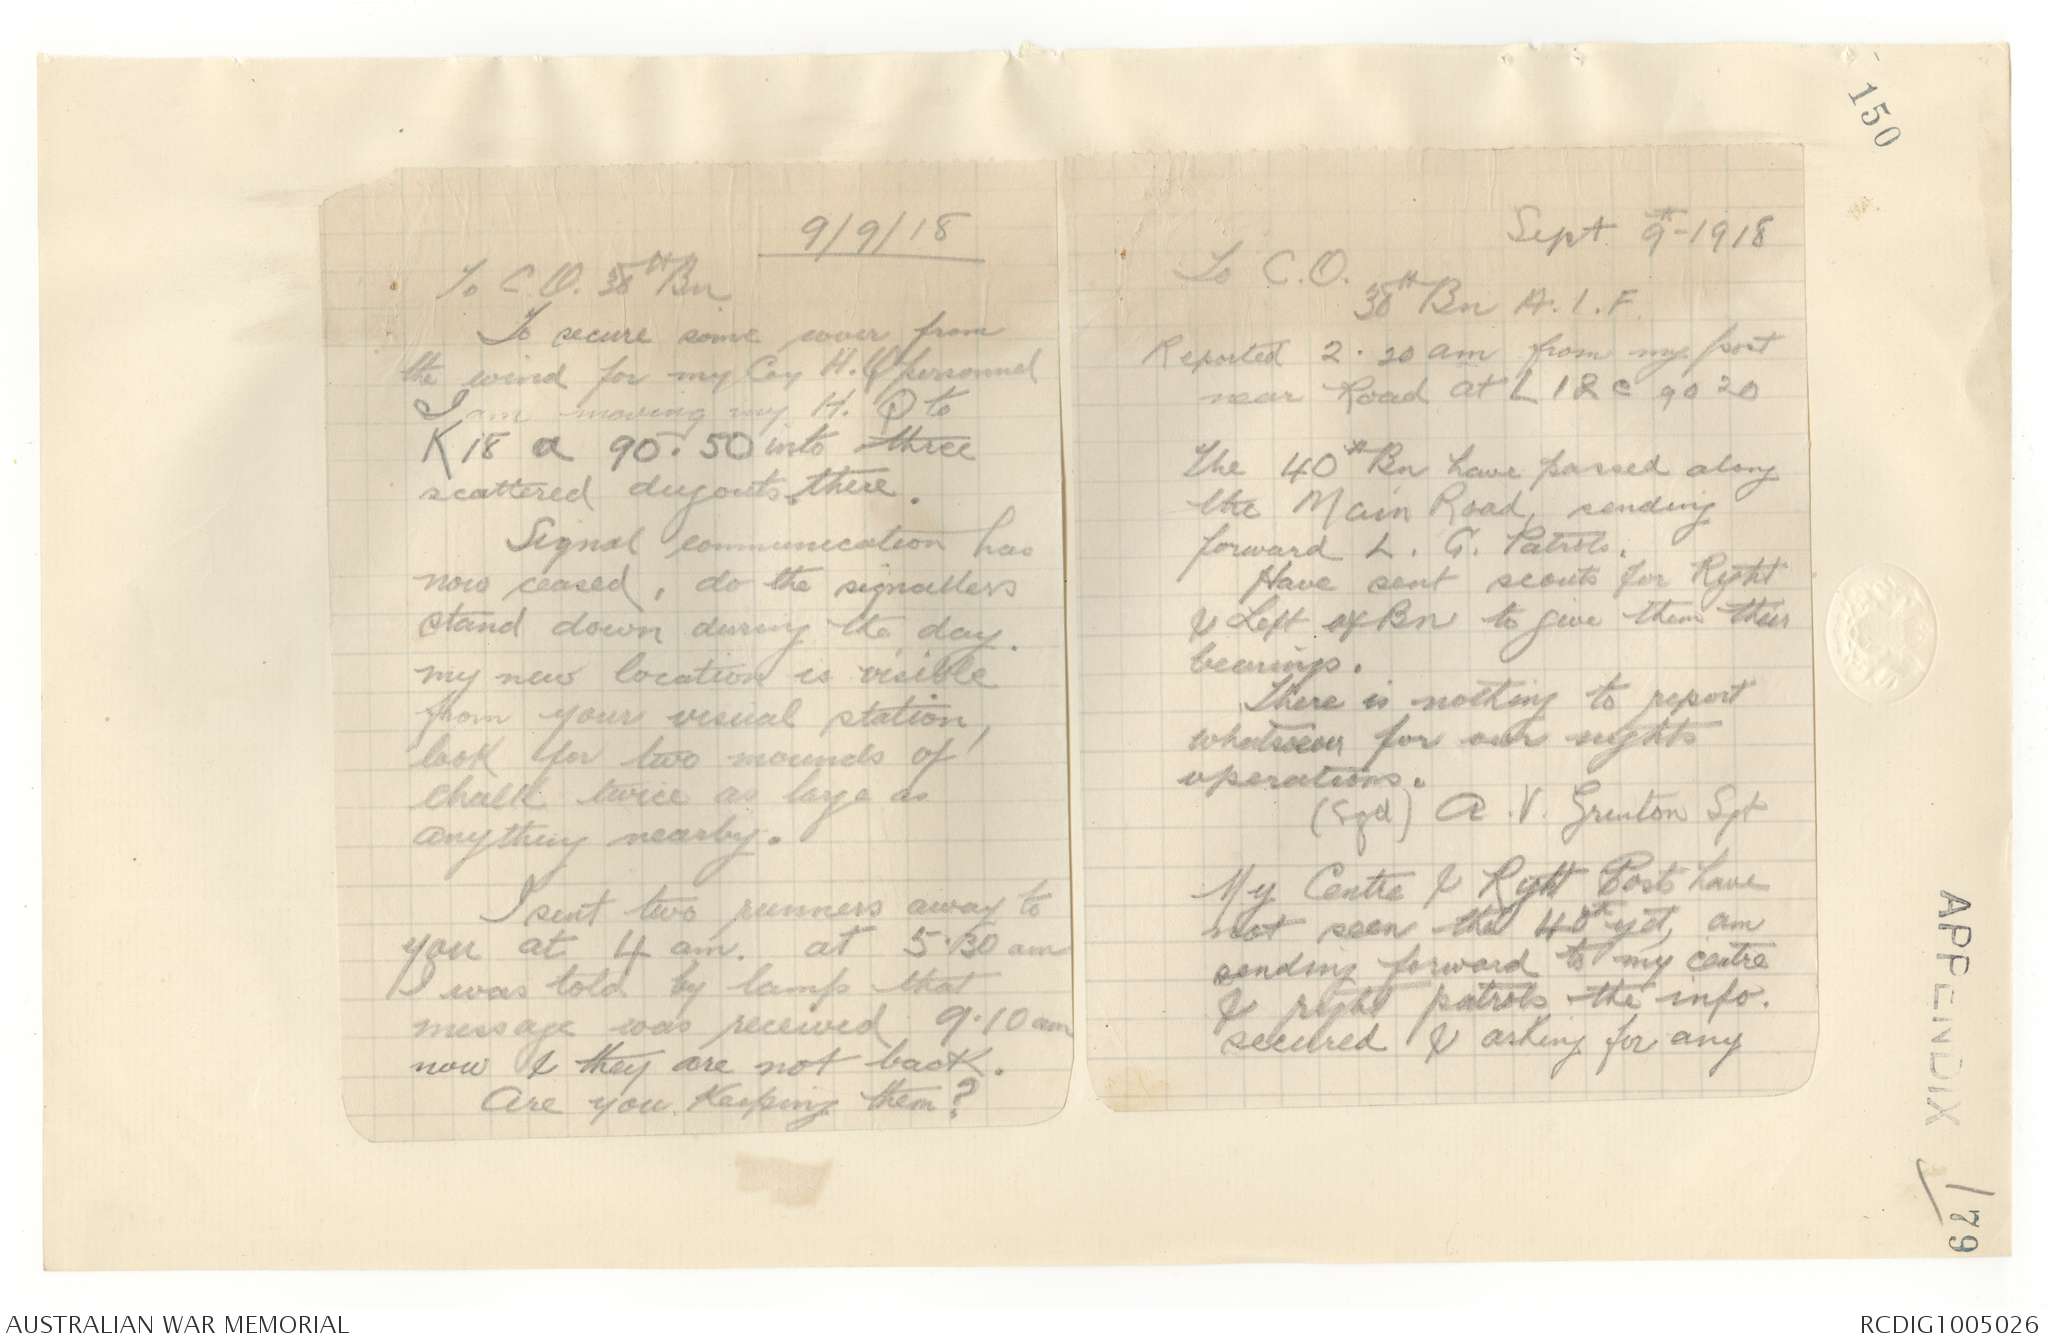 150
9/9/18
To C.O. 38th Bn
To secure some cover from
the wind for my Coy H.Q personnel
I am moving my H. Q to
K18 a 90.50 into three
scattered dugouts there.
Signal communication has
now ceased, do the signallers
stand down during the day.
my new location is visible
from your visual station,
look for two mounds of
chalk twice as large as
anything nearby.
I sent two runners away to
you at 4 am. at 5.30 am
I was told by lamp that
message was received 9.10 am
now & they are not back.
Are you keeping them?
Sept 9th-1918
To C.O.
38th Bn A.I.F.
Reported 2.20 am from my post
near Road at L 1 & c 90 20
The 40th Bn have passed along
the Main Road, sending
forward L. G. Patrols.
Have sent scouts for Right
& Left of Bn to give them their
bearings.
There is nothing to report
whatsoever for our nights
operations.
(Sgd) A.V. Grinton Sgt
My Centre & Right Posts have
not seen the 40th yet, am
sending forward to my centre
& right patrols the info.
secured & asking for any
APPENDIX 179
AUSTRALIAN WAR MEMORIAL
RCDIG1005026